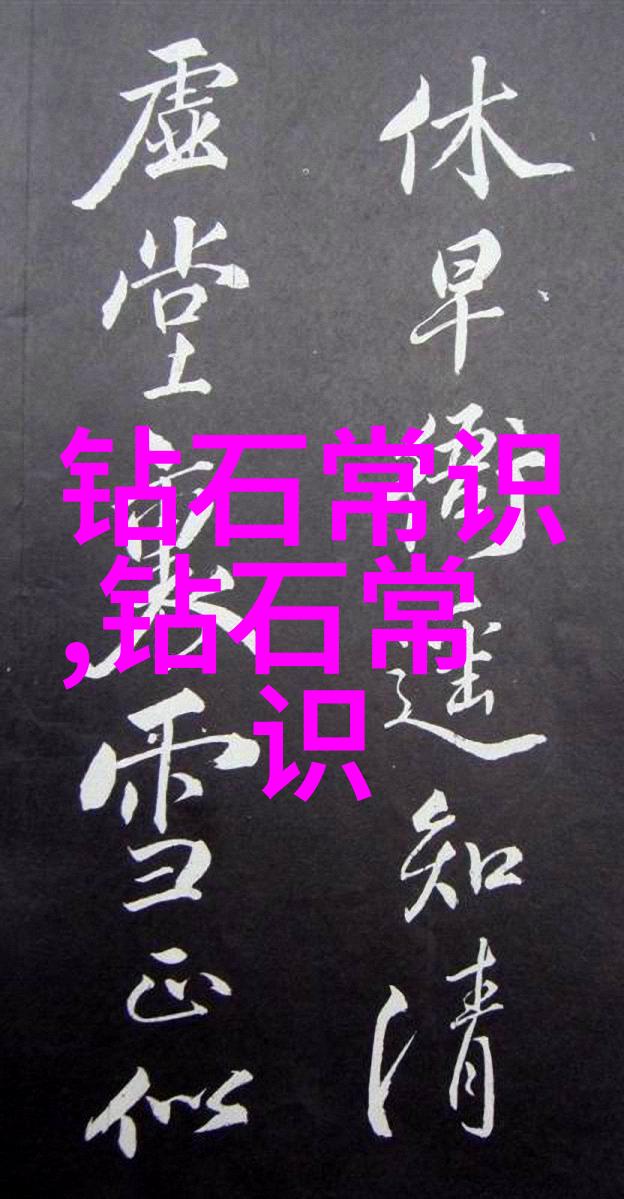 休早衙遥知清
虚堂裏雪正似
钻石常识
,钻石常
识